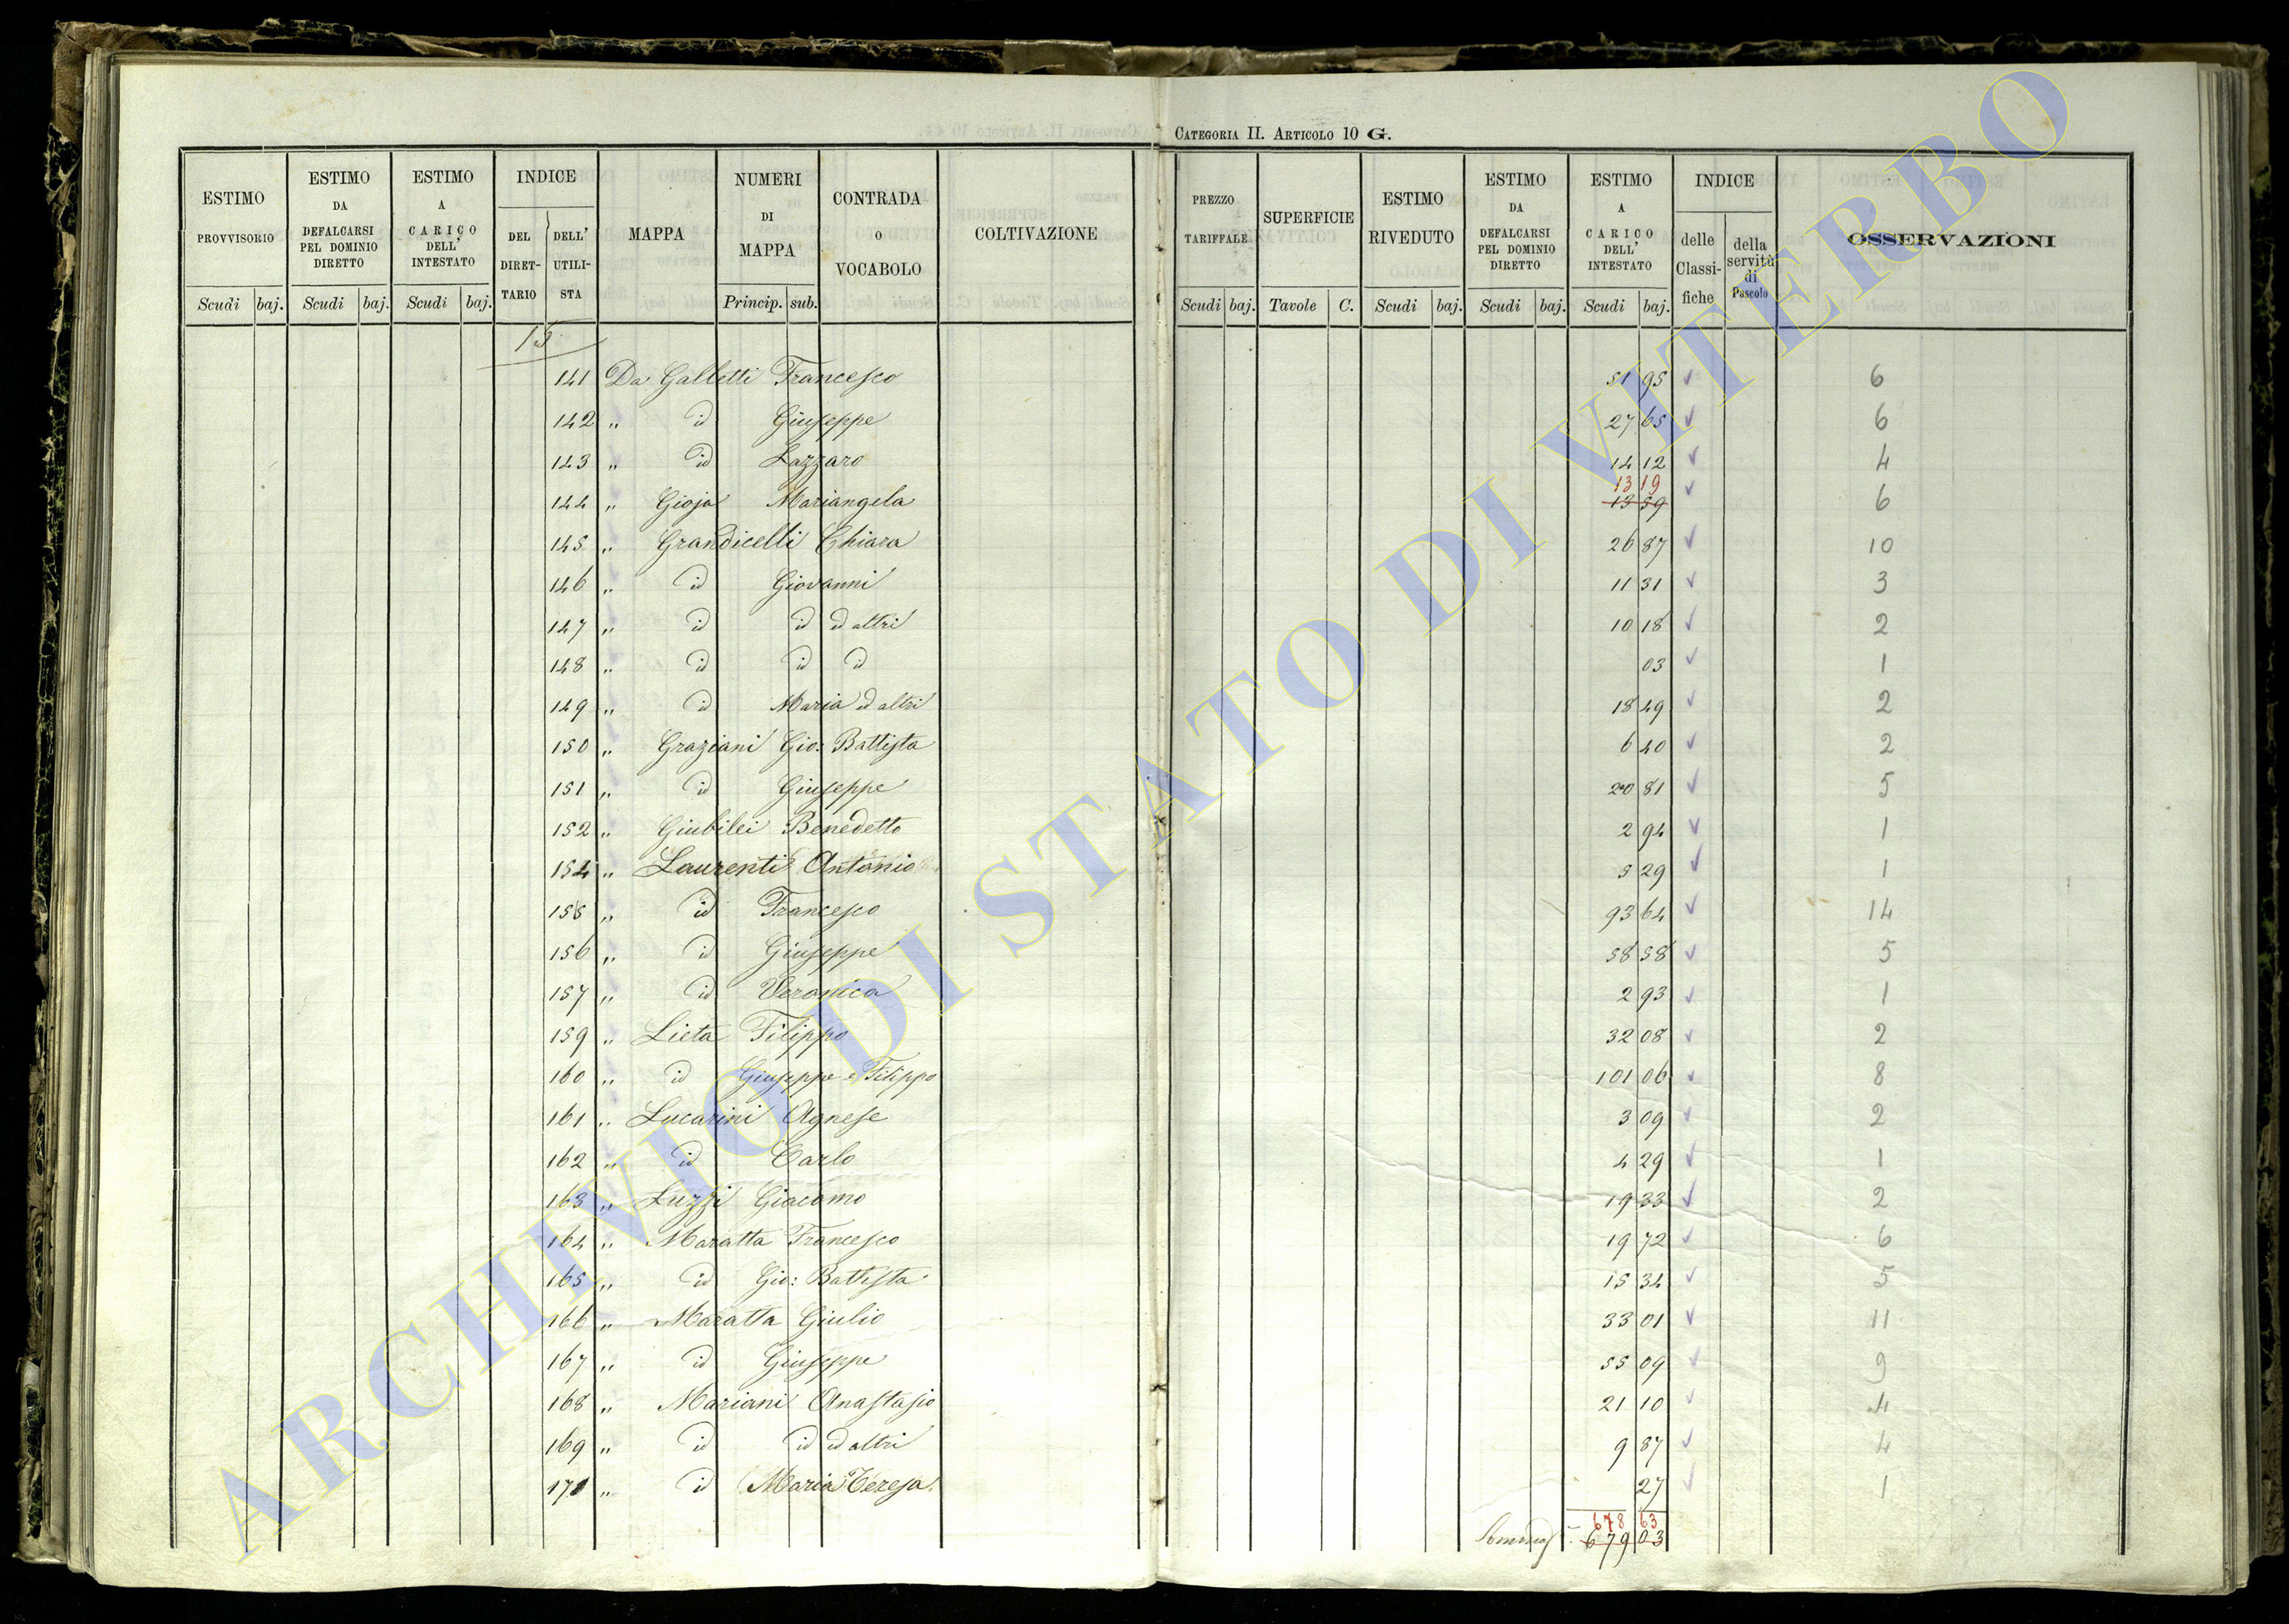 CATEGORIA II. ARTICOLO 10 G.
ESTIMO PROVVISORIO Scudi baj.
ESTIMO DA DEFALCARSI PEL DOMINIO DIRETTO Scudi baj.
ESTIMO A CARICO DELL' INTESTATO Scudi baj.
INDICE DEL DIRET- TARIO DELL' UTILI- STA
MAPPA
NUMERI DI MAPPA Princip. sub.
CONTRADA O VOCABOLO
COLTIVAZIONE
PREZZO TARIFFALE Scudi baj.
SUPERFICIE Tavole C.
ESTIMO RIVEDUTO Scudi baj.
ESTIMO DA DEFALCARSI PEL DOMINIO DIRETTO Scudi baj.
ESTIMO A CARICO DELL' INTESTATO Scudi baj.
INDICE delle Classi- fiche della servitù di Pascolo
OSSERVAZIONI
15
141 Da Galletti Francesco 51 95 6
142 " id Giuseppe 27 65 6
143 " id Lazzaro 14 12 4
13 19
144 " Gioja Mariangela 13 59 6
145 " Grandicelli Chiara 26 87 10
146 " id Giovanni 11 31 3
147 " id id ed altri 10 18 2
148 " id id id 03 1
149 " id Maria ed altri 18 49 2
150 " Graziani Gio: Battista 6 40 2
151 " id Giuseppe 20 81 5
152 " Giubilei Benedetto 2 94 1
154 " Laurenti Antonio 5 29 1
155 " id Francesco 93 64 14
156 " id Giuseppe 58 58 5
157 " id Veronica 2 93 1
159 " Lieta Filippo 32 08 2
160 " id Giuseppe e Filippo 101 06 8
161 " Lucarini Agnese 3 09 2
162 " id Carlo 4 29 1
163 " Luzzi Giacomo 19 33 2
164 " Maratta Francesco 19 72 6
165 " id Gio: Battista 15 34 5
166 " Maratta Giulio 33 01 11
167 " id Giuseppe 55 09 9
168 " Mariani Anastasio 21 10 4
169 " id id ed altri 9 87 4
171 " id Maria Teresa 27 1
678 63
Somma 679 03
ARCHIVIO DI STATO DI VITERBO